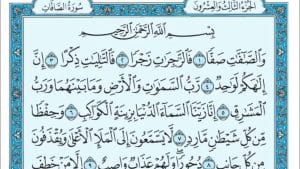 سُورَةُ الصَّافَّاتِ
الجُزْءُ الثَّالِثُ وَالعِشْرُونَ
بِسْمِ اللَّهِ الرَّحْمَٰنِ الرَّحِيمِ
وَالصَّٰٓفَّٰتِ صَفًّا ١ فَالزَّٰجِرَٰتِ زَجْرًا ٢ فَالتَّٰلِيَٰتِ ذِكْرًا ٣ إِنَّ
إِلَٰهَكُمْ لَوَٰحِدٌ ٤ رَّبُّ السَّمَٰوَٰتِ وَالْأَرْضِ وَمَا بَيْنَهُمَا وَرَبُّ
الْمَشَٰرِقِ ٥ إِنَّا زَيَّنَّا السَّمَآءَ الدُّنْيَا بِزِينَةٍ الْكَوَاكِبِ ٦ وَحِفْظًا
مِّن كُلِّ شَيْطَٰنٍ مَّارِدٍ ٧ لَّا يَسَّمَّعُونَ إِلَى الْمَلَإِ الْأَعْلَىٰ وَيُقْذَفُونَ
مِن كُلِّ جَانِبٍ ٨ دُحُورًا وَلَهُمْ عَذَابٌ وَاصِبٌ ٩ إِلَّا مَنْ خَطِفَ